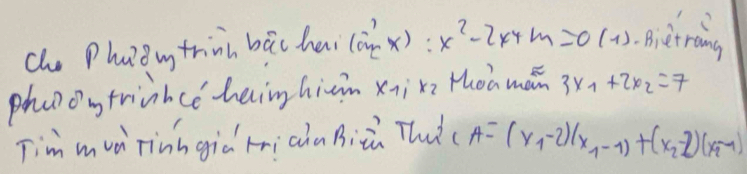 Cho Phương trình bậc hai (ẩn x) : x² - 2x + m = 0 (1). Biết rằng
phương trình có hai nghiệm x₁; x₂ thoả mãn 3x₁ + 2x₂ = 7
Tìm m và Tính giá trị của Biểu Thức A = (x₁-2)(x₁-1) + (x₂-2)(x₂-1)